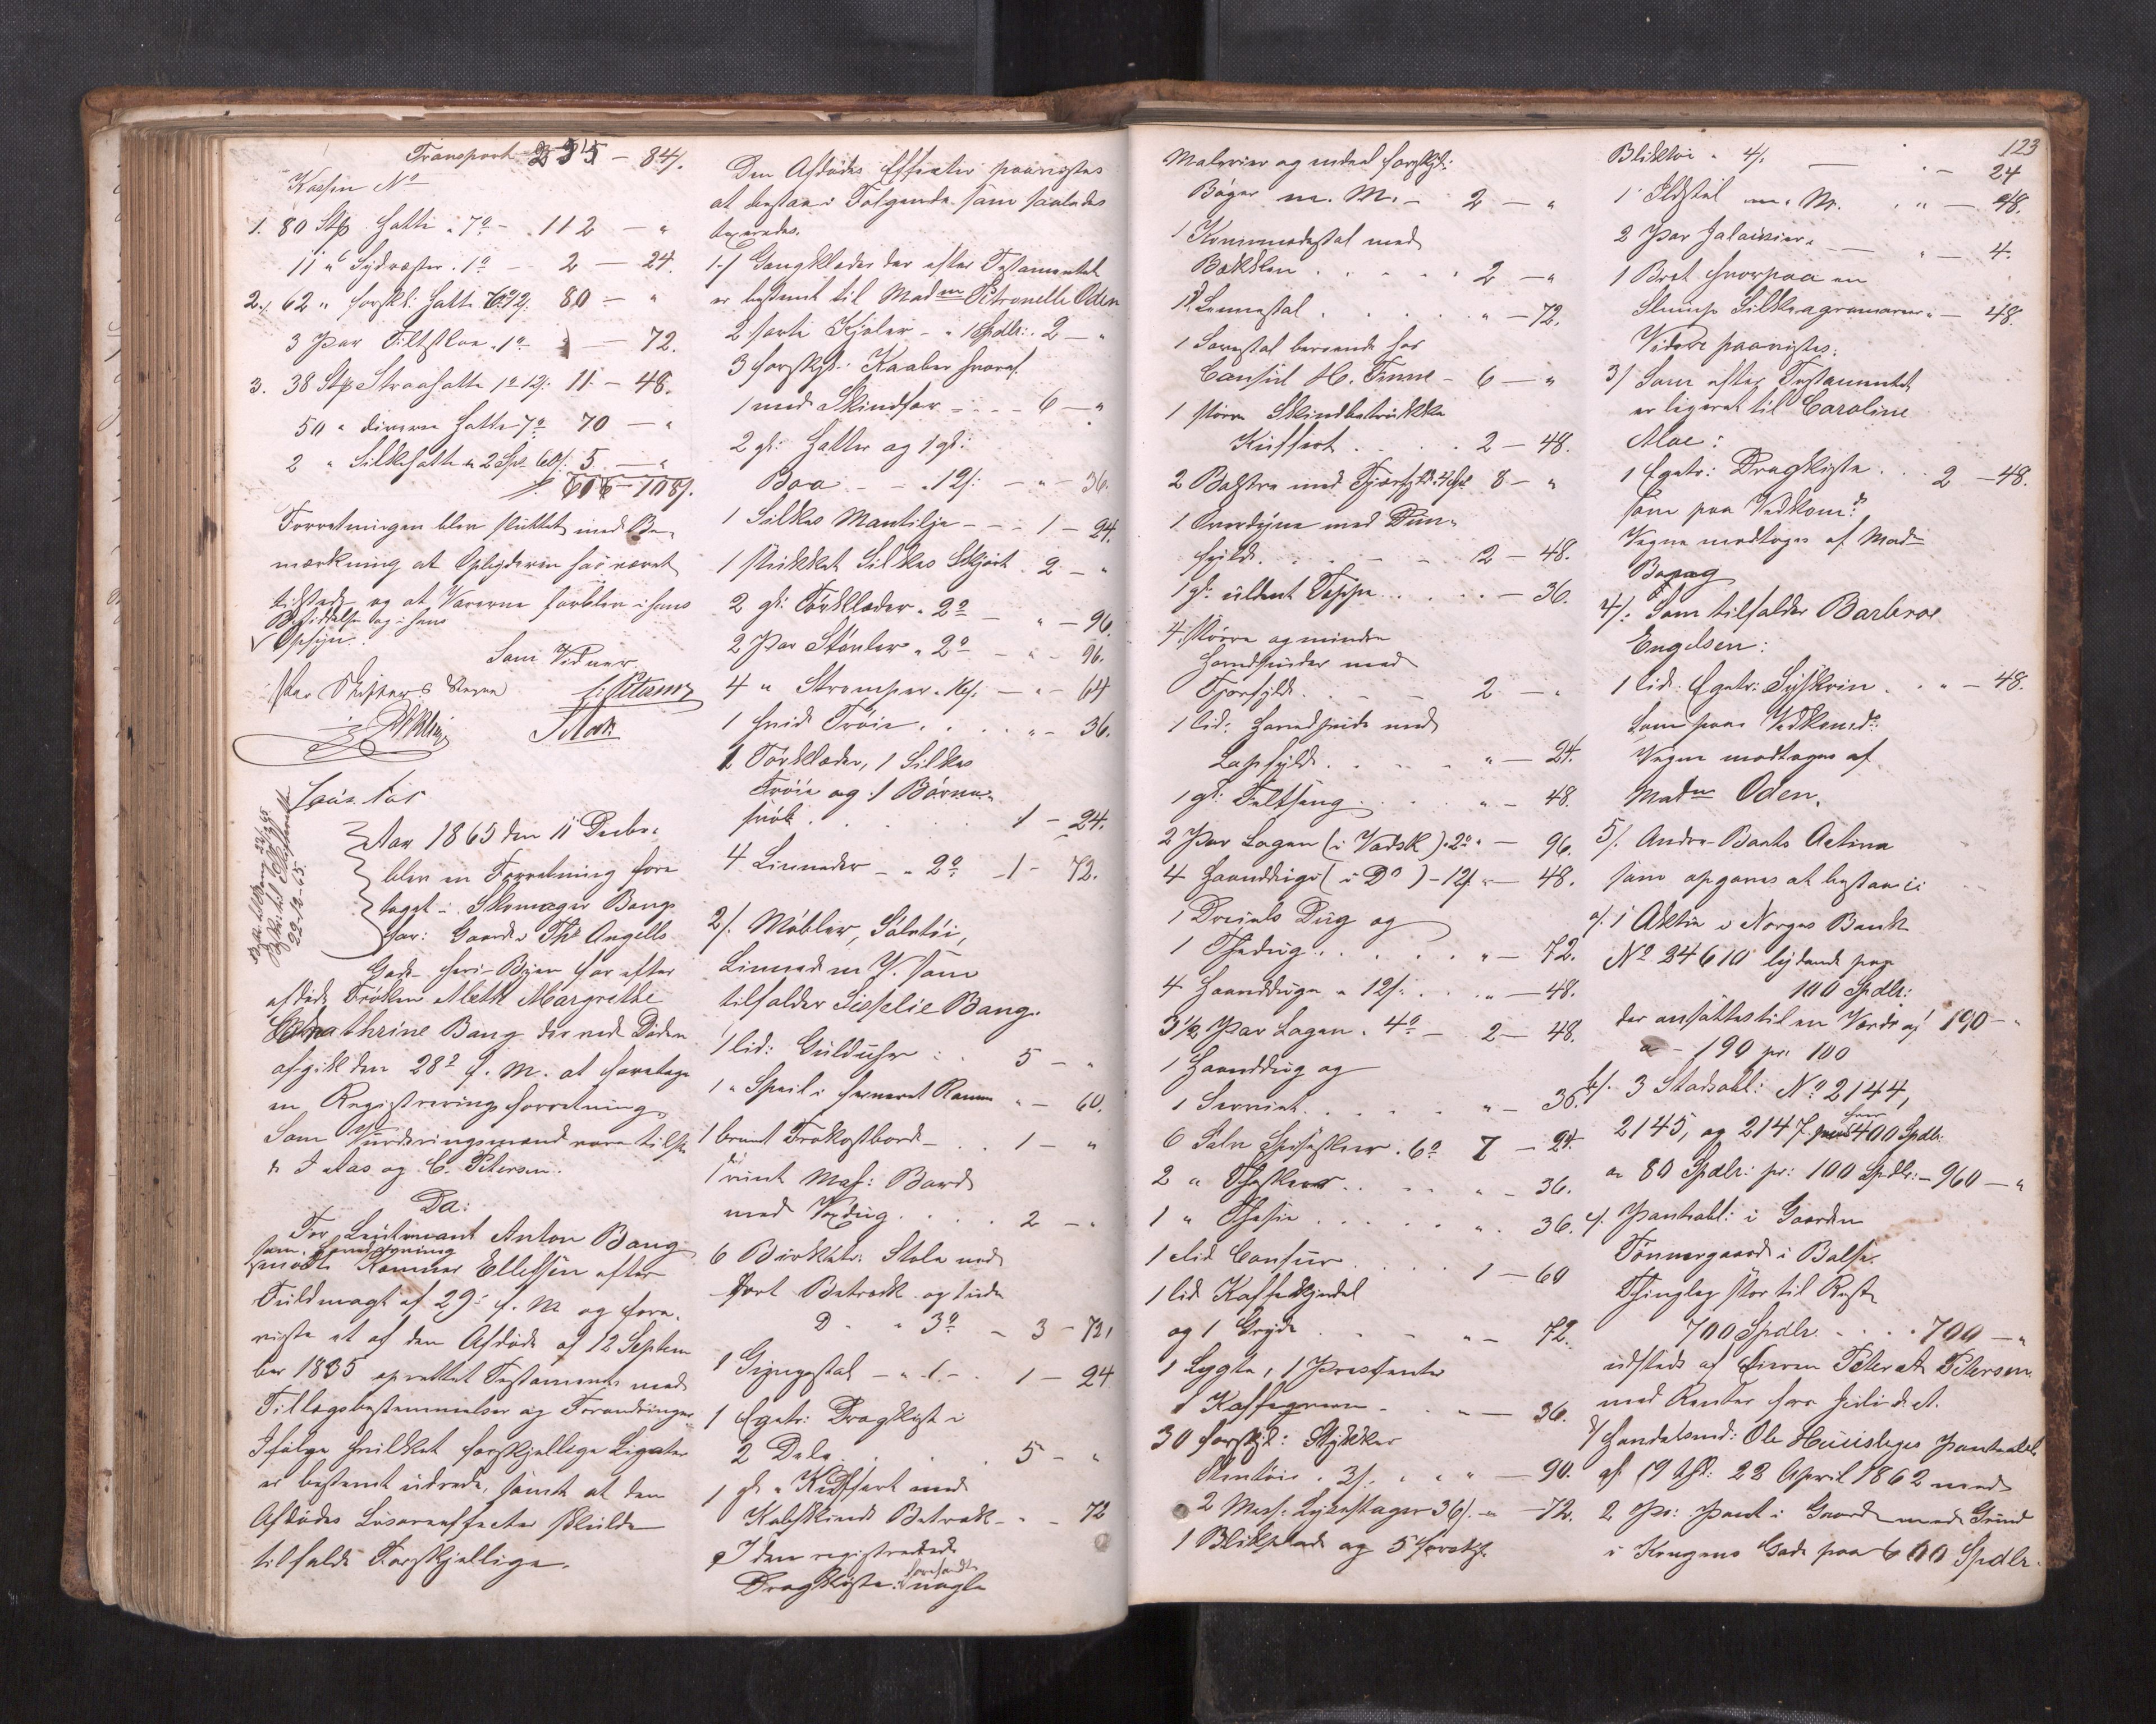 Transport 255 – 84/.
Kassen No
1. 80 Stk Hatte „ 7o – „ 112 – „
11 „ Sydvester „ 1o – 2 – 24.
2/. 62 „ forskl: Hatte 80 – „
3 Par Filtskoe „ 1o „ – 72.
3. 38 Stk Straahatte 1o 12/: 11 – 48.
50 „ diverse Hatte 7o 70 – „
2 „ Silkehatte a 2 Sp. 60/: 5 – „
606 – 108/.
Forretningen blev sluttet med Be-
mærkning at Opbyderen har været
tilstede og at Varerne forblev i hans
Besiddelse og i hans
Opsyn.
Som Vidner
For Skifterets Vegne
C. Petersen
J Aas
Aar 1865 den 11 Decbr.
blev en Forretning fore
taget i Skomager Bangs
Gaard i Ths Angells
Gade her i Byen for efter
afdøde Frøken Mette Margrethe
Cathrine Bang der ved Døden
afgik den 28de f. M. at foretage
en Registreringsforretning.
Som Vurderingsmænd vare tilste
de J Aas og C. Petersen.
Da:
For Lieutenant Anton Bang
som Kammer Ellefsen efter
Fuldmagt af 29de f. M og frem-
viste et af den Afdøde af 12 Septem
ber 1835 oprettet Testament med
Tillægsbestemmelser og Forandringer
Ifølge hvilket forskjellige Legater
er bestemt udrede, samt at den
Afdødes Løsøreeffecter skulde
tilfalde Forskjellige.
Den Afdødes Effecter paavistes
at bestaa i Følgende som saaledes
taxeredes.
1/. Gangklæder der efter Testamentet
er bestemt til Madm Petronelle Oden
2 sorte Kjoler – „ 1 Spdlr: 2 – „
3 forskjl: Kaaber hvoraf
1 med Skindfor – – – 6 – „
2 gl: Hatter og 1 gl:
Boa – – „ 12/: – „ – 36.
1 Silkes Mantilje – – – 1 – 24.
1 stukket Silkes Skjørt . 2 – „
2 gl: Tørklæder „ 2o – „ – 96.
2 Par Støvler „ 2o – „ – 96.
4 „ Strømper „ 16/. – „ – 64
1 hvid Trøie . . . . „ – 36.
2 Tørklæder, 1 Silkes
Trøie og 1 Børne-
1 – 24.
4 Linneder – „ 2o – 1 – 72.
2/. Møbler, Sølvtøi,
Linned m. Y. som
tilfalder Bang.
1 lid: Gulduhr . . 5 – „
1 „ Speil i ferneret Ramm „ – 60.
1 brunt Frokostbord – . . 1 – „
1 rundt Mah: Bord
med Voxdug . . . . 2 – „
6 Birketr: Stole med
sort Betræk og
D – „ 3o – 3 – 72,
1 Gyngestol – „ 1 . – . 1 – 24
1 Egetr: Dragkist i
2 Dele . . . . 5 – „
1 gl „ Kuffert med
Kalvskinds Betræk – „ – 72
I den registrerede
Dragkiste forefandtes nogle
123
Malerier og endeel forskjl:
Bøger m. M. – 2 – „
1 Kommodestol med
Bækken . . . . . 2 – „
1 Lænestol . . . . . „ – 72.
1 Lænestol beroende hos
Consul H. Finne – 6 – „
1 større Skindbetrukken
Kuffert . . . . 2 – 48.
2 Bolstre med Fjærfyld 8 – „
1 Overdyne med Duun-
fyld . . . . . – 2 – 48.
1 gl: uldent Teppe . . . . – 36.
4 større og mindre
Hovedpuder med
Fjærfyld . . . – 2 – „
1 lid: Hovedpude med
Lapfyld . . . . . „ – 24.
1 gl: Feltseng . . . . „ – 48.
2 Par Lagen (i Vadsk) . 2o „ – 96.
4 Haanddug (i Do) – 12/. „ – 48.
1 Dreiels Dug og
1 Thedug . . . . . „ – 72.
4 Haandduge „ 12/: . . „ – 48.
3 1/2 Par Lagen „ 4o – 2 – 48.
1 Haanddug og
1 Serviet . . . . . „ – 36.
6 Sølv Spiseskeer . 6o 7 – 24.
2 „ Theskeer . . . . „ – 36.
1 „ Thesie . . . . . „ . 36.
1 lid Confur . . . . 1 – 60
1 lid Kaffekjedel
og 1 Gryde . . – . „ – 72.
1 Lygte, 1 Presenter
1 Kaffe „ – 36.
30 forskjl: Stykker
Steentøi „ 3/. „ „ „ – 90.
2 Mess: Lysestager 36/. „ – 72.
1 Blikplade og 5 forskjl.
Bliktøi „ 4/: – „ – 24
1 Ildstel m. M. . „ – 48.
2 Par Jalousier . – „ – 4.
1 Bret hvorpaa en
Slump „ – 48.
Videre paavistes:
3/ Som efter Testamentet
er legeret til Caroline
Moe:
1 Egetr: Dragkiste . . . 2 – 48.
som paa Vedkom:s
Vegne modtoges af Mad-
4/: Som tilfalder Barbroe
Engelsen:
1 lid: Egetr: Syskrin . . „ – 48.
Som paa Vedkomds
Vegne modtoges af
Madm Oden.
5/. Andre Boets Activa
som opgaves at bestaa i:
a/. 1 Aktie i Norges Bank
No 24610 lydende paa
100 Spdlr:
der ansattes til en Værdi af 190 – „
a – 190 pr. 100
b/. 3 Stadsobl: No 2144,
2145, og 2147 hver 400 Spdlr.
a 80 Spdlr: pr: 100 Spdlr: – 960 – „
c/. Pantobl: i Gaarden
Tønnergaard i Balsf.
Thinglag stor til Rest
700 Spdlr. . . . . 700 – „
udstedt af Eieren Peter A Petersen
med Renter fra Juli d. A.
d/ Handelsmd: Ole Huuslegs Pantobl.
af 19 22 April 1862 med
2 Pr: Pant i Gaard med Grund
i Kongens Gade paa 600 Spdlr.